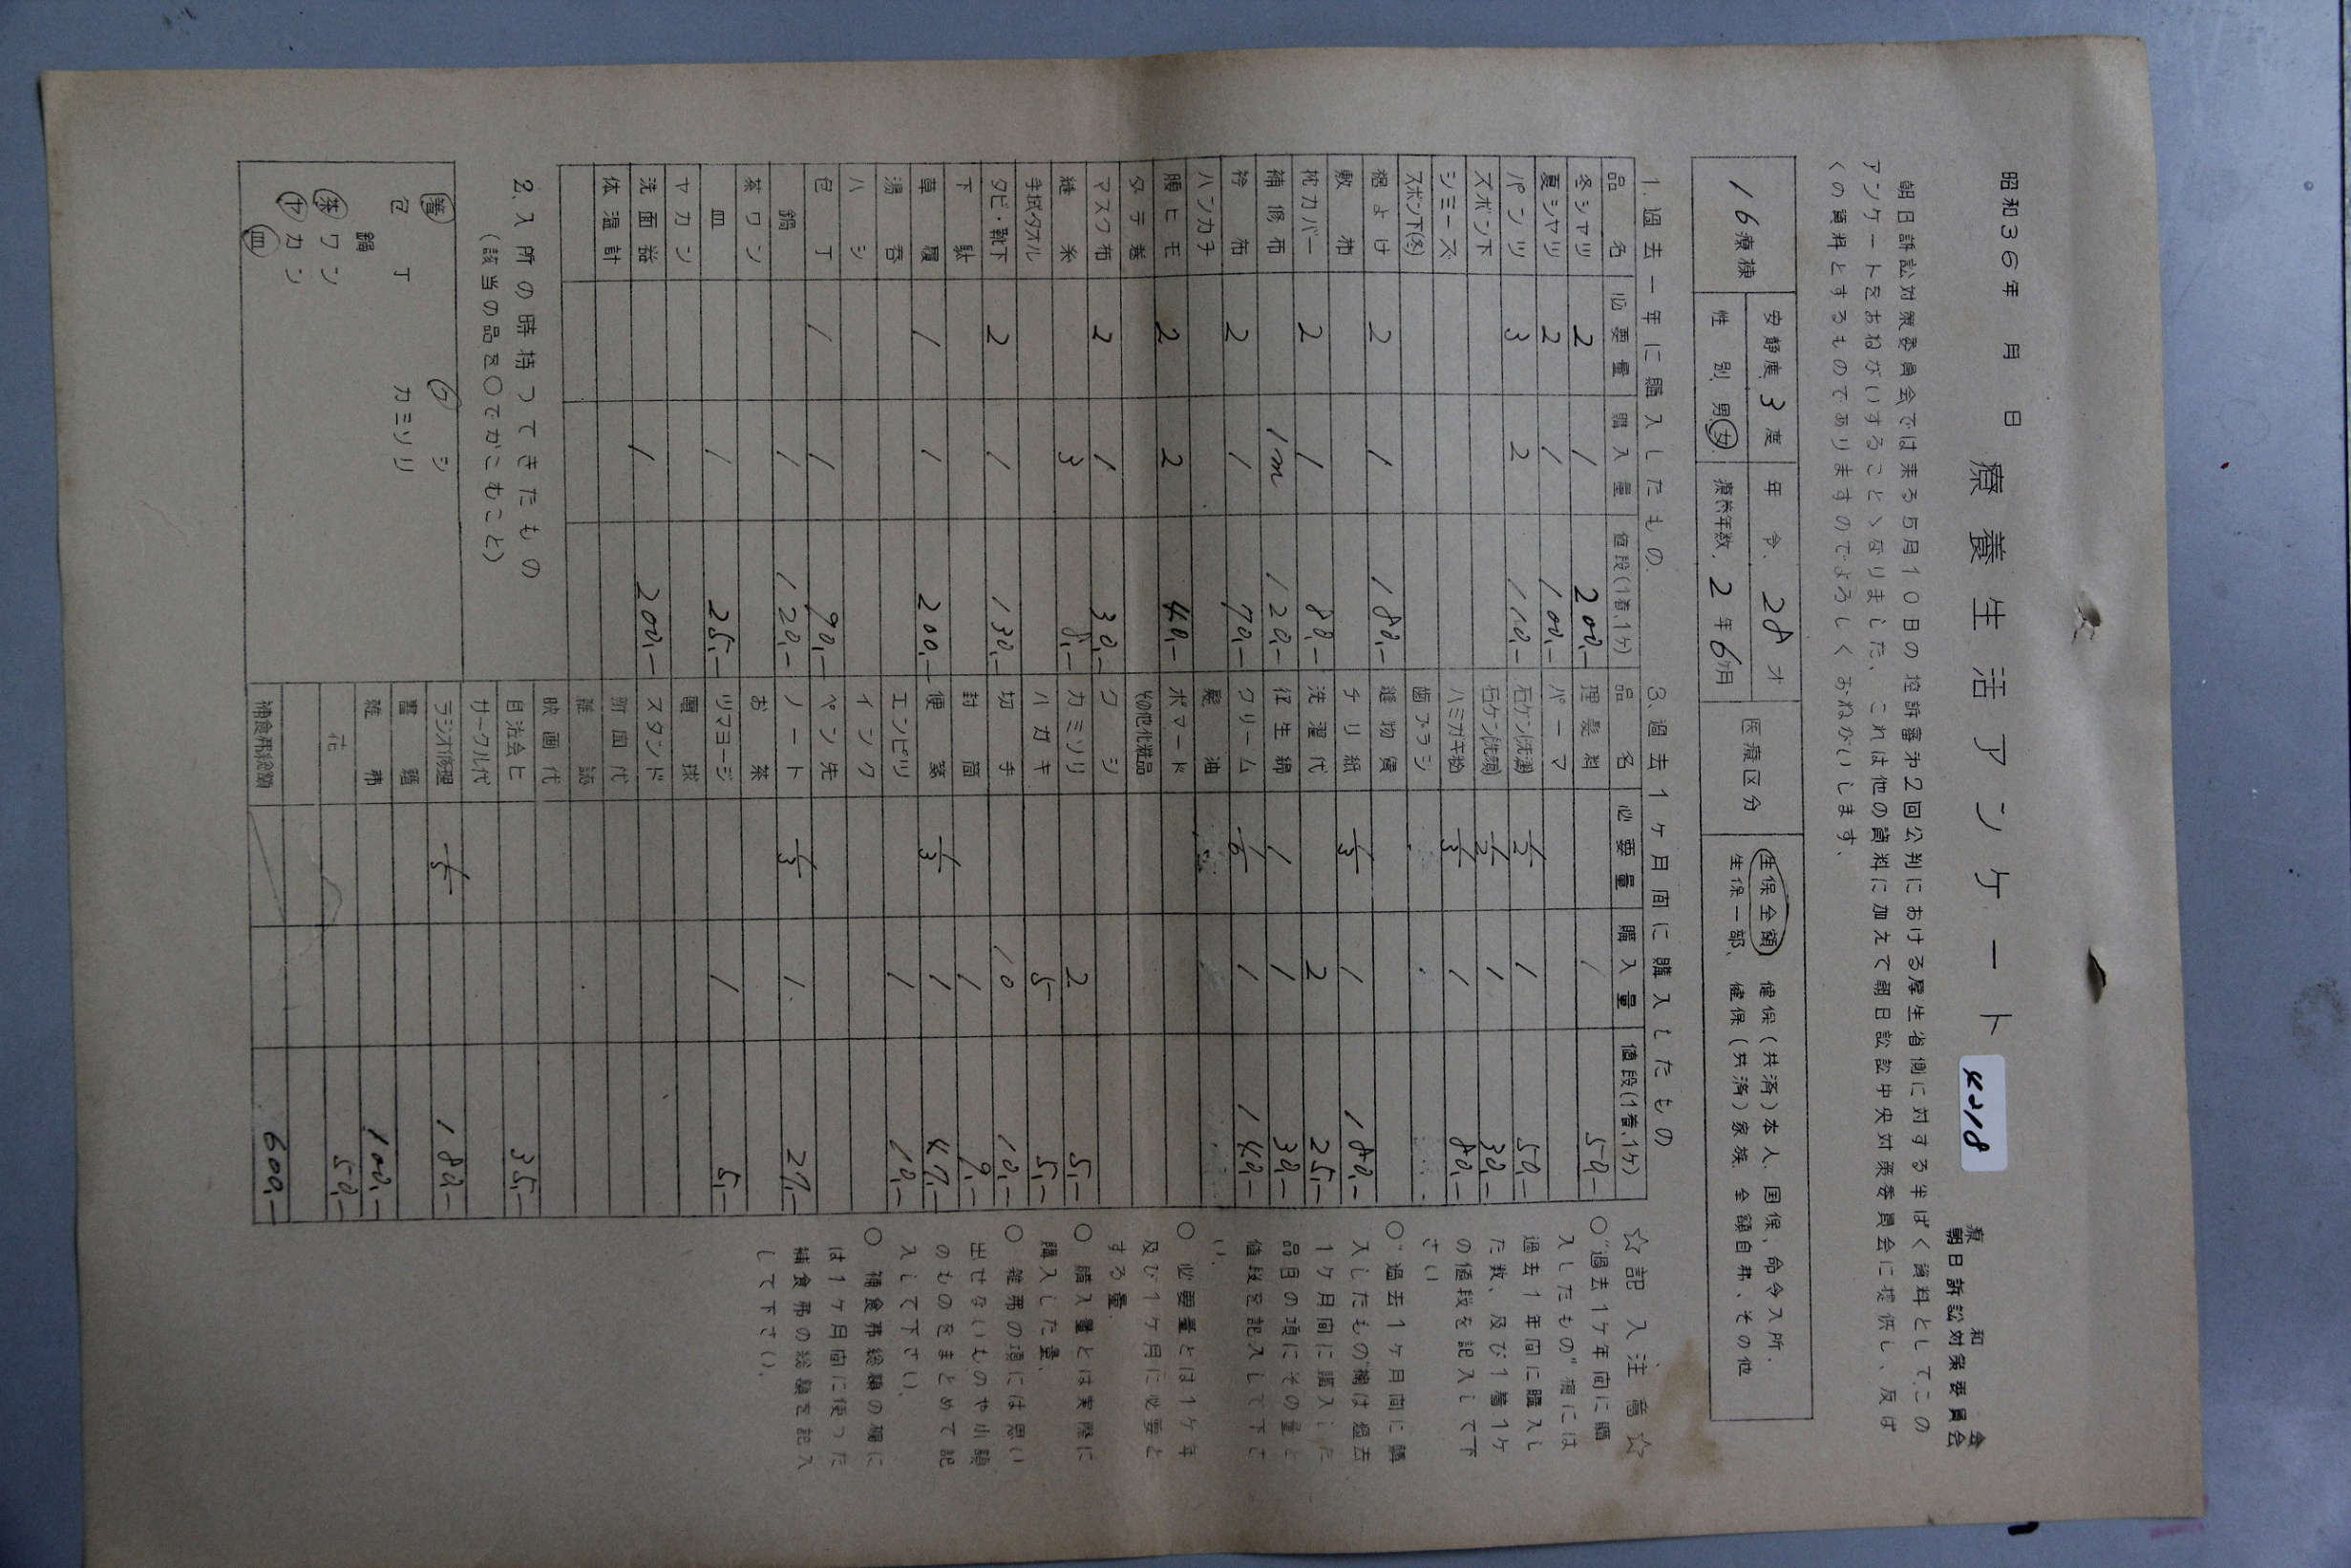 昭和36年　月　日
療養生活アンケート
4-218
療和会
朝日訴訟対策委員会
朝日訴訟対策委員会では来る5月10日の控訴審第2回公判における厚生省側に対する半ばく資料としてこの
アンケートをおねがいすることゝなりました、これは他の資料に加えて朝日訟訴中央対策委員会に提供し、反ば
くの資料とするものでありますのでよろしくおねがいします、
16療棟　安静度、3度　年令、28才　医療区分　生保全額　健保(共済)本人、国保、命令入所、
性別、男 女　療養年数、2年6ヶ月　生保一部、健保(共済)家族、全額自弗、その他
1.過去一年に購入したもの、
品名　必要量　購入量　値段(1着、1ケ)
冬シヤツ　2　1　200,-
夏シヤツ　2　1　100,-
パンツ　3　2　110,-
ズボン下
シミーズ
スポン下(冬)
裾よけ　2　1　180,-
敷布
枕カバー　2　1　80,-
補修布　1m　120,-
衿布　2　1　70,-
ハンカチ
腰ヒモ　2　2　40,-
ダテ巻
マスク布　2　1　30,-
縫糸　3　8,-
手拭タオル
タビ・靴下　2　1　130,-
下駄
草履　1　1　200,-
湯呑
ハシ
包丁　1　1　90,-
鍋　1　120,-
茶ワン
皿　1　25,-
ヤカン
洗面器　1　200,-
体温計
2.入所の時持つてきたもの
(該当の品を〇でかこむこと)
箸　クシ
包丁　カミソリ
鍋
茶ワン
ヤカン
皿
3、過去1ヶ月間に購入したもの
品名　必要量　購入量　値段(1着、1ケ)
理髪料　1　50,-
パーマ
石ケン(洗濯)　1/2　1　50,-
石ケン(洗顔)　1/2　1　30,-
ハミガキ粉　1/3　1　80,-
歯ブラシ
縫物賃
チリ紙　1/3　1　180,-
洗濯代　2　25,-
衛生綿　1　1　30,-
クリーム　1/6　1　140,-
髪油
ポマード
その他化粧品
クシ
カミソリ　2　5,-
ハガキ　5　5,-
切手　10　10,-
封筒　1　9,-
便箋　1/3　1　47,-
エンピツ　1　10,-
インク
ペン先
ノート　1/3　1　27,-
お茶
ツマヨージ　1　5,-
電球
スタンド
附図代
雑誌
映画代
自治会ヒ　35,-
サークル代
ラジオ修理　1/5　180,-
書籍
雑弗　100,-
花　50,-
補食弗総額　600,-
☆記入注意☆
〇"過去1ケ年間に購
入したもの"欄には
過去1年間に購入し
た数、及び1着1ケ
の値段を記入して下
さい
〇"過去1ヶ月間に購
入したもの"欄は過去
1ヶ月間に購入した
品目の項にその量と
値段を記入して下さ
い、
〇　必要量とは1ヶ年
及び1ヶ月に必要と
する量、
〇　購入量とは実際に
購入した量、
〇　雑弗の項には思い
出せないものや小額
のものをまとめて記
入して下さい、
〇　補食弗総額の欄に
は1ヶ月間に使った
補食弗の総額を記入
して下さい、